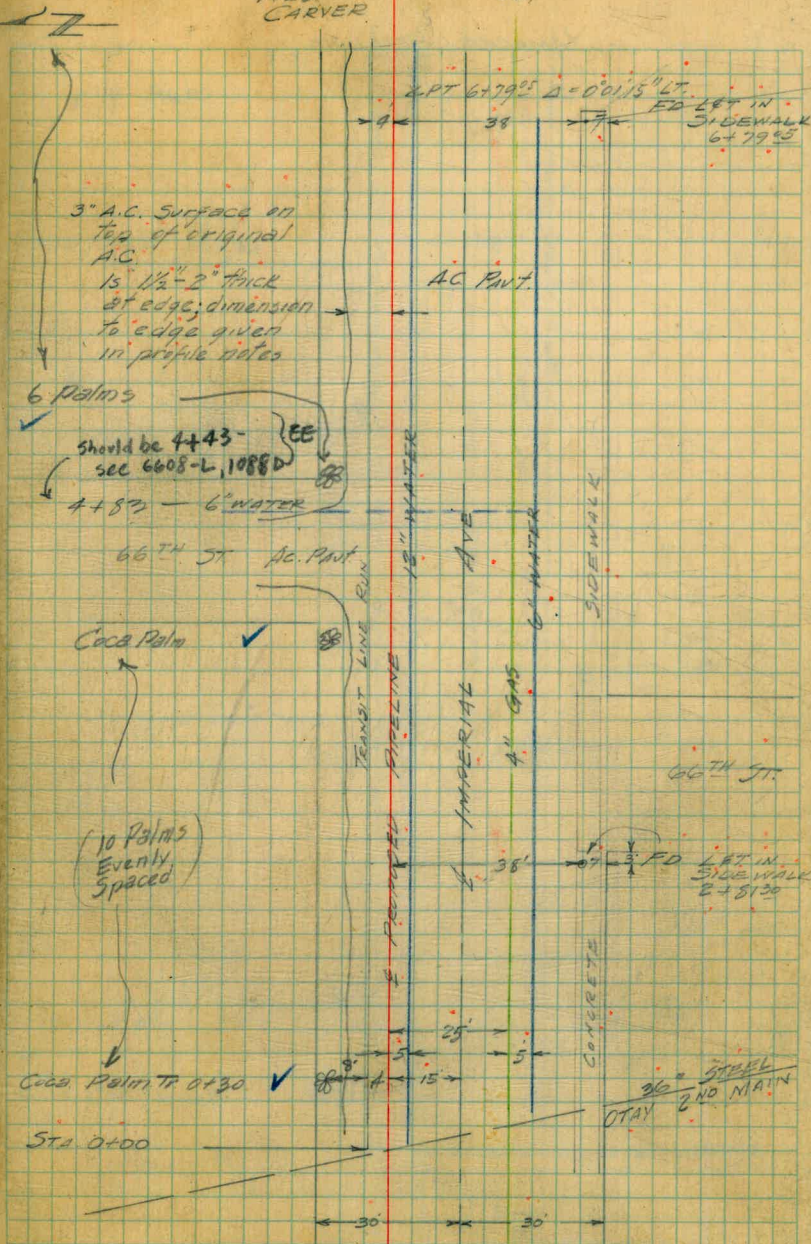 CARVER
∠PT 6+79.05 Δ=0°01'15" LT.
FD L&T IN
SIDEWALK
6+79.05
4
38
7
3" A.C. Surface on
top of original
A.C.
Is 1½"-2" thick
at edge; dimension
to edge given
in profile notes
AC PAVT.
6 Palms
should be 4+43-
see 6608-L, 1088D
EE
4+83 — 6" WATER
66TH ST. AC. PAVT
Coca Palm
TRANSIT LINE RUN
℄ PROPOSED PIPELINE
12" WATER
℄ IMPERIAL AVE
4" GAS
6" WATER
SIDEWALK
CONCRETE
66TH ST.
(10 Palms
Evenly
Spaced)
38'
7
FD L&T IN
SIDEWALK
2+81.30
25'
5
5'
8'
4
15'
Coca Palm Tr 0+30
36" STEEL
OTAY 2ND MAIN
STA 0+00
30'
30'